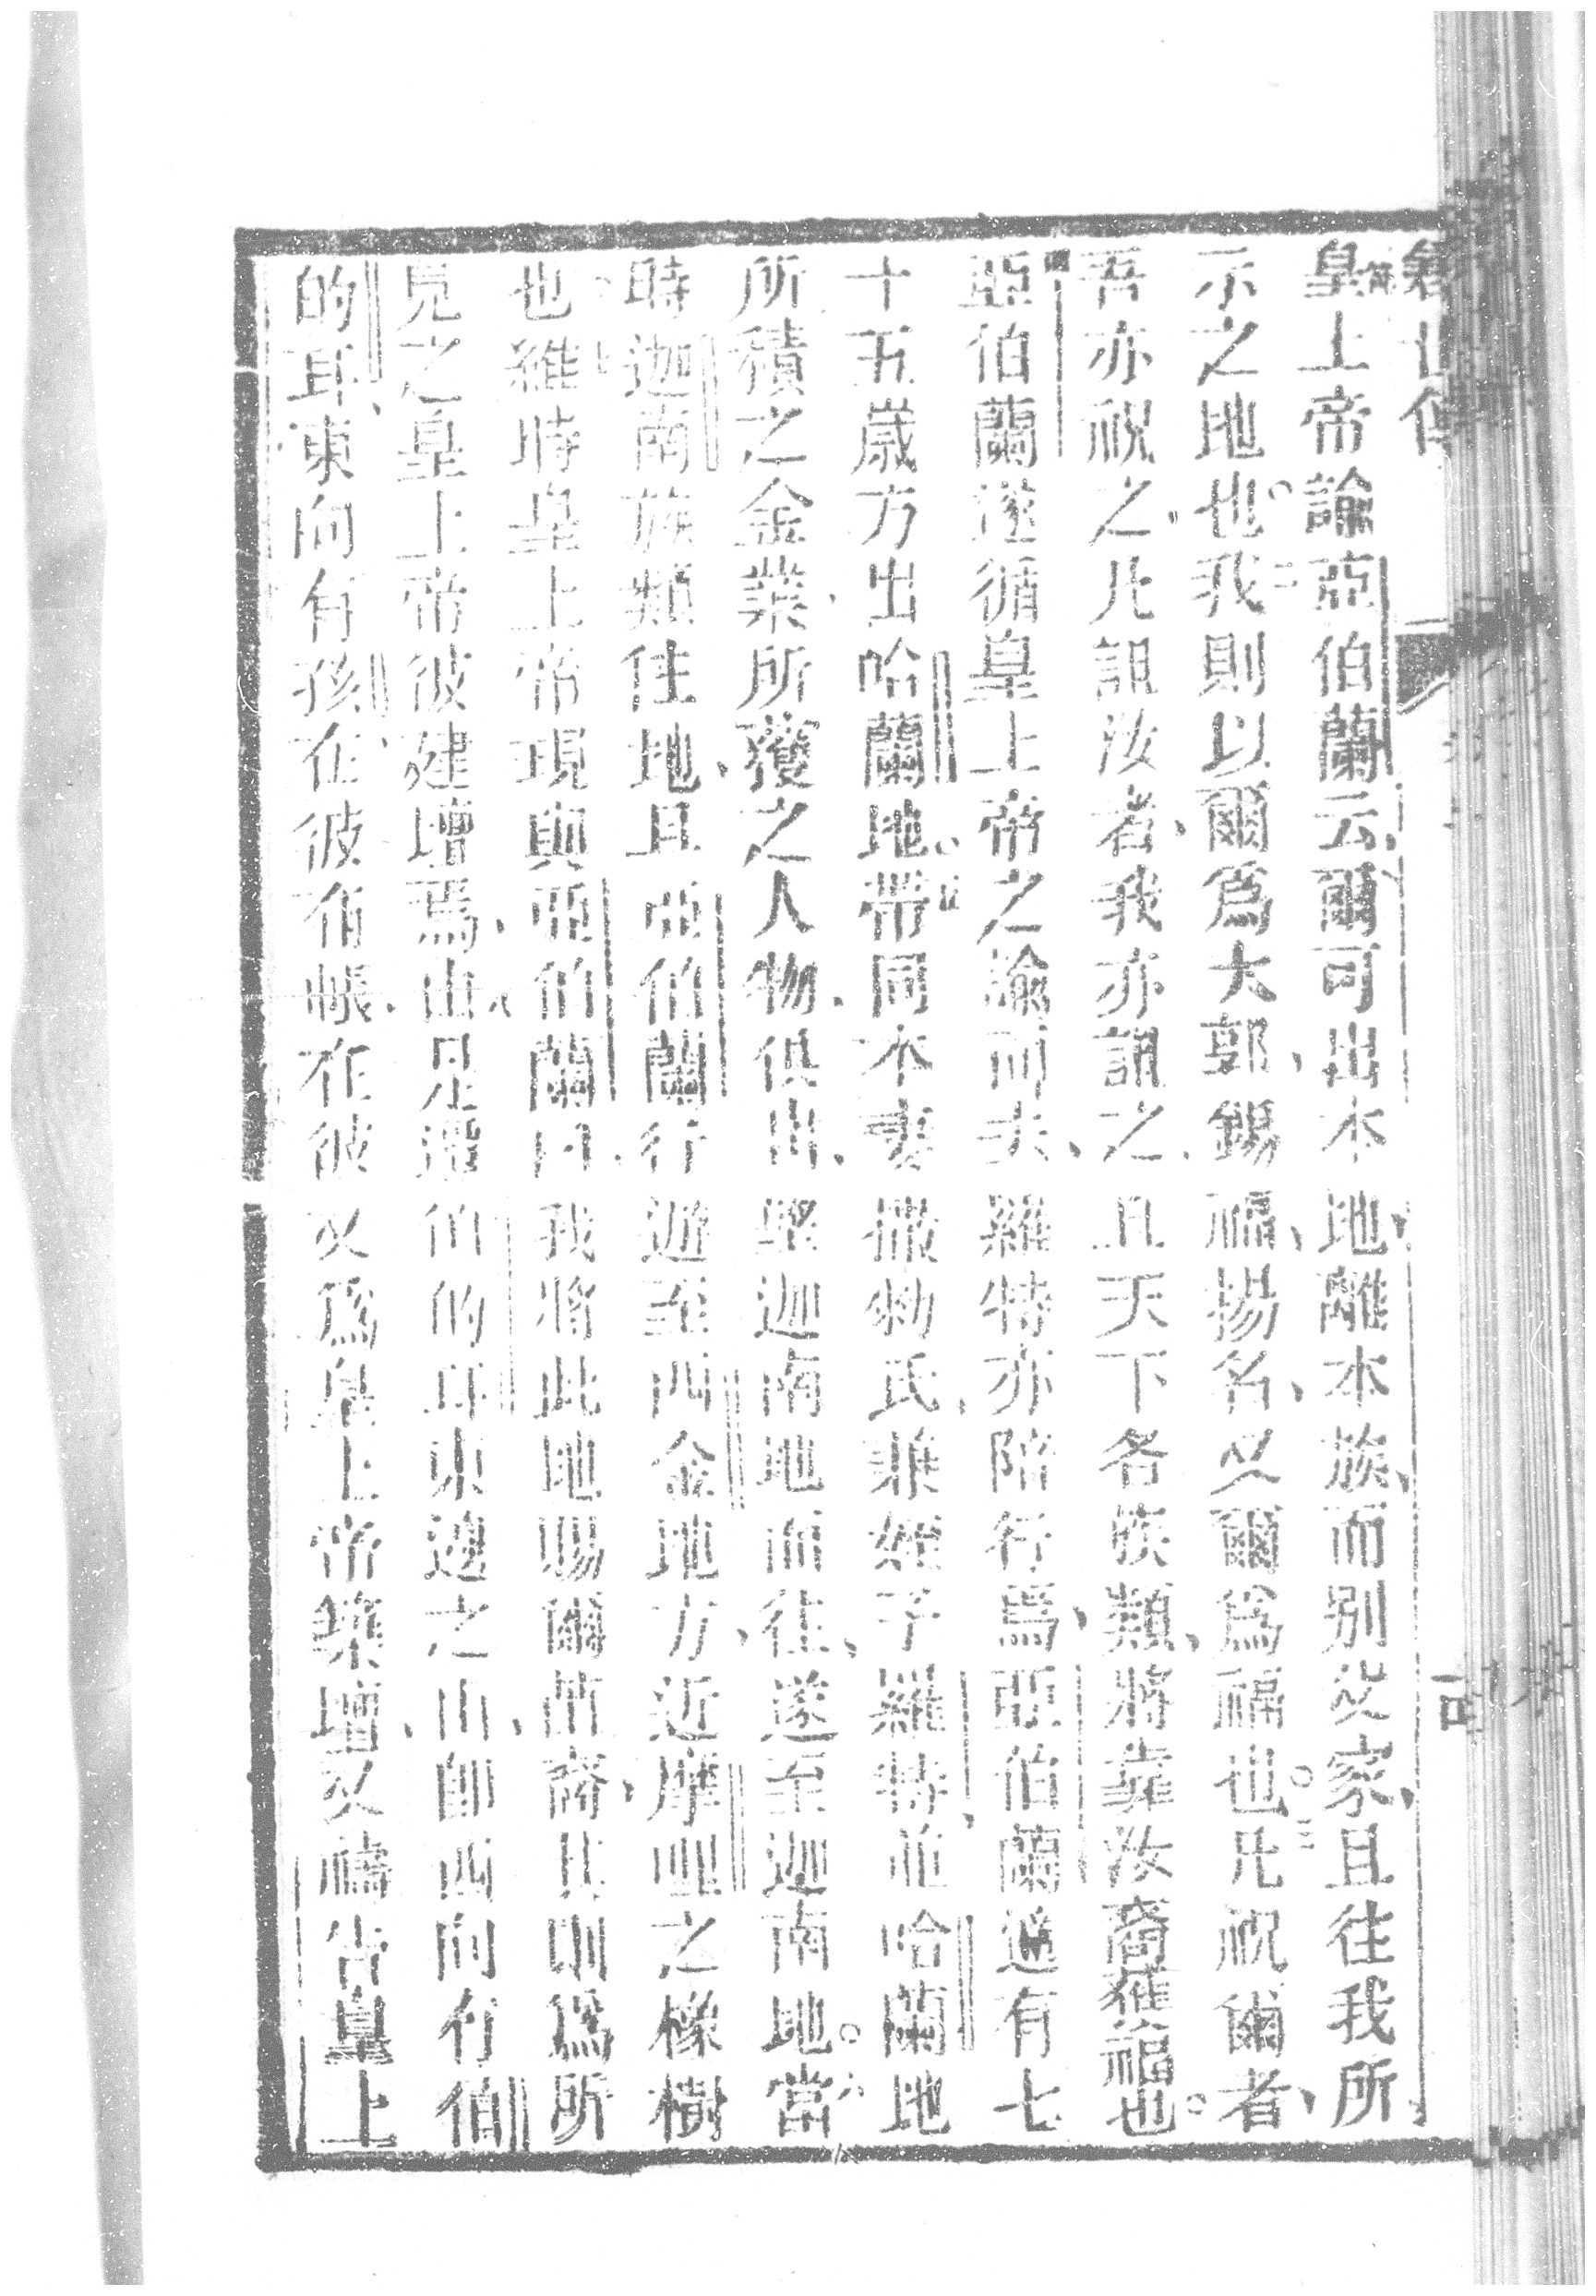 皇上帝諭亞伯蘭云、爾可出本地、離本族、而別父家、且往我所
示之地也。二我則以爾爲大郭、錫福、揚名、又爾爲福也。三凡祝爾者、
吾亦祝之、凡詛汝者、我亦詛之、且天下各族類、將靠汝裔獲福也。
亞伯蘭遂循皇上帝之諭而去、羅特亦陪行焉、亞伯蘭適有七
十五歲方出哈蘭地。帶同本妻撒勑氏、兼姪子羅特、並哈蘭地
所積之金業、所獲之人物、俱出、望迦南地而往、遂至迦南地。六當
時迦南族類住地、且亞伯蘭行遊至四金地方、近摩哩之橡樹
也、維時皇上帝現與亞伯蘭曰、我將此地賜爾苗裔、其則爲所
見之皇上帝彼建壇焉、由是遷伯的耳東邊之山、卽西向有伯
的耳、東向有孩、在彼布帳、在彼又爲皇上帝築壇、又禱告皇上